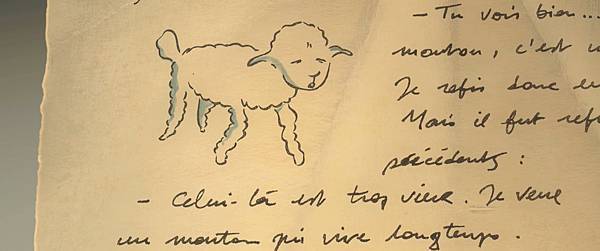 - Tu vois bien...
mouton, c'est u
Je refis donc en
Mais il fut refu
précédents :
- Celui-là est trop vieux. Je veux
un mouton qui vive longtemps.